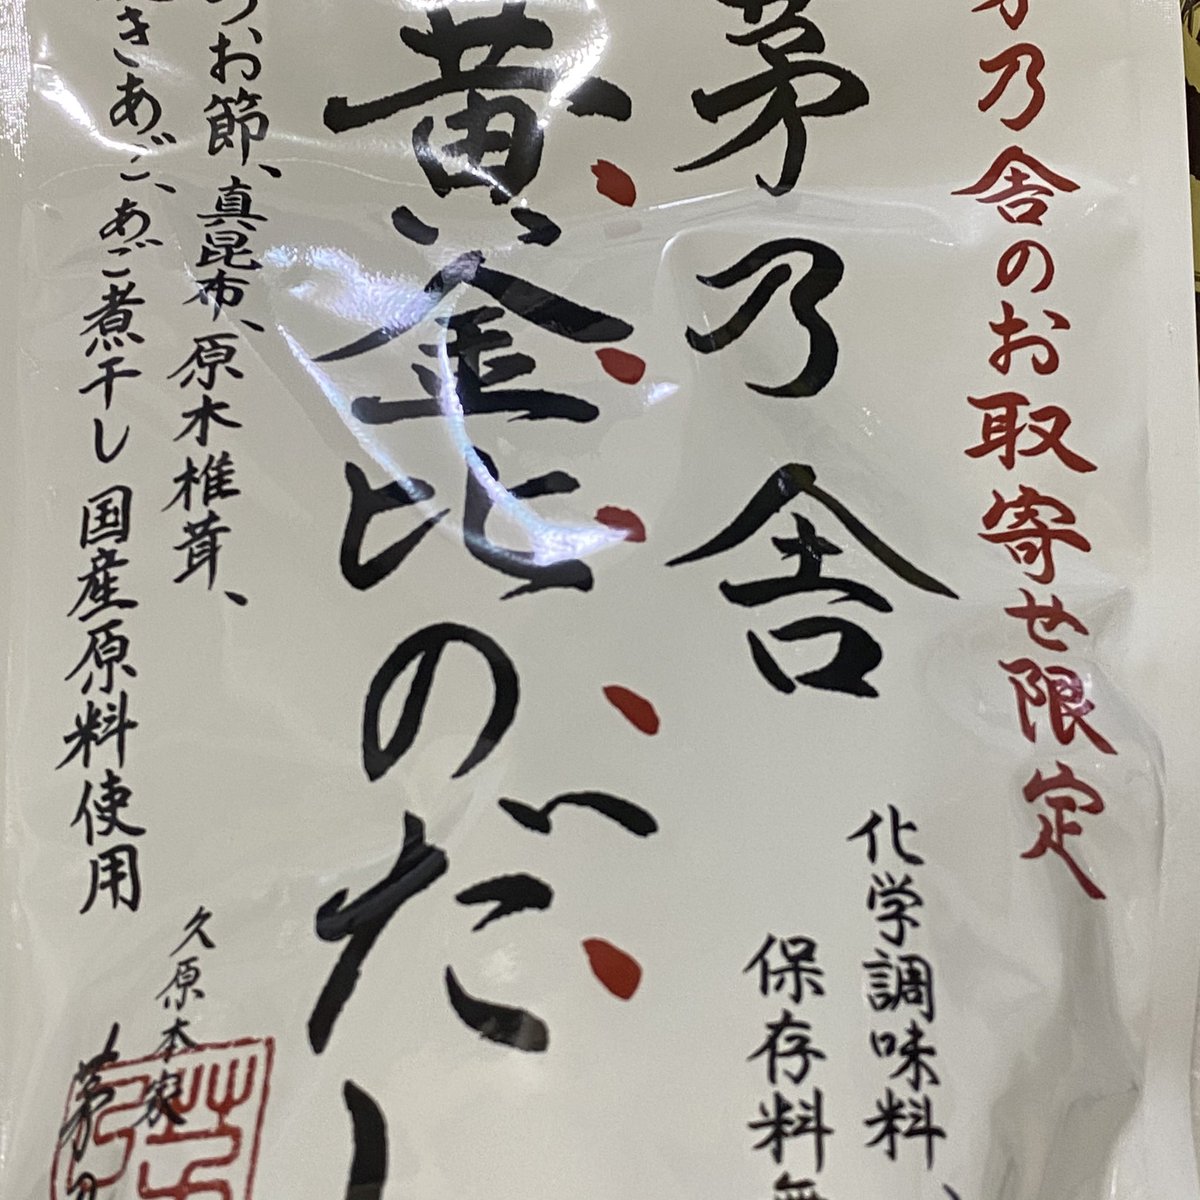 茅乃舎のお取寄せ限定
化学調味料、
保存料無
茅乃舎
黄金比のだし
つお節、真昆布、原木椎茸、
焼きあご、あご煮干し 国産原料使用
久原本家
茅乃